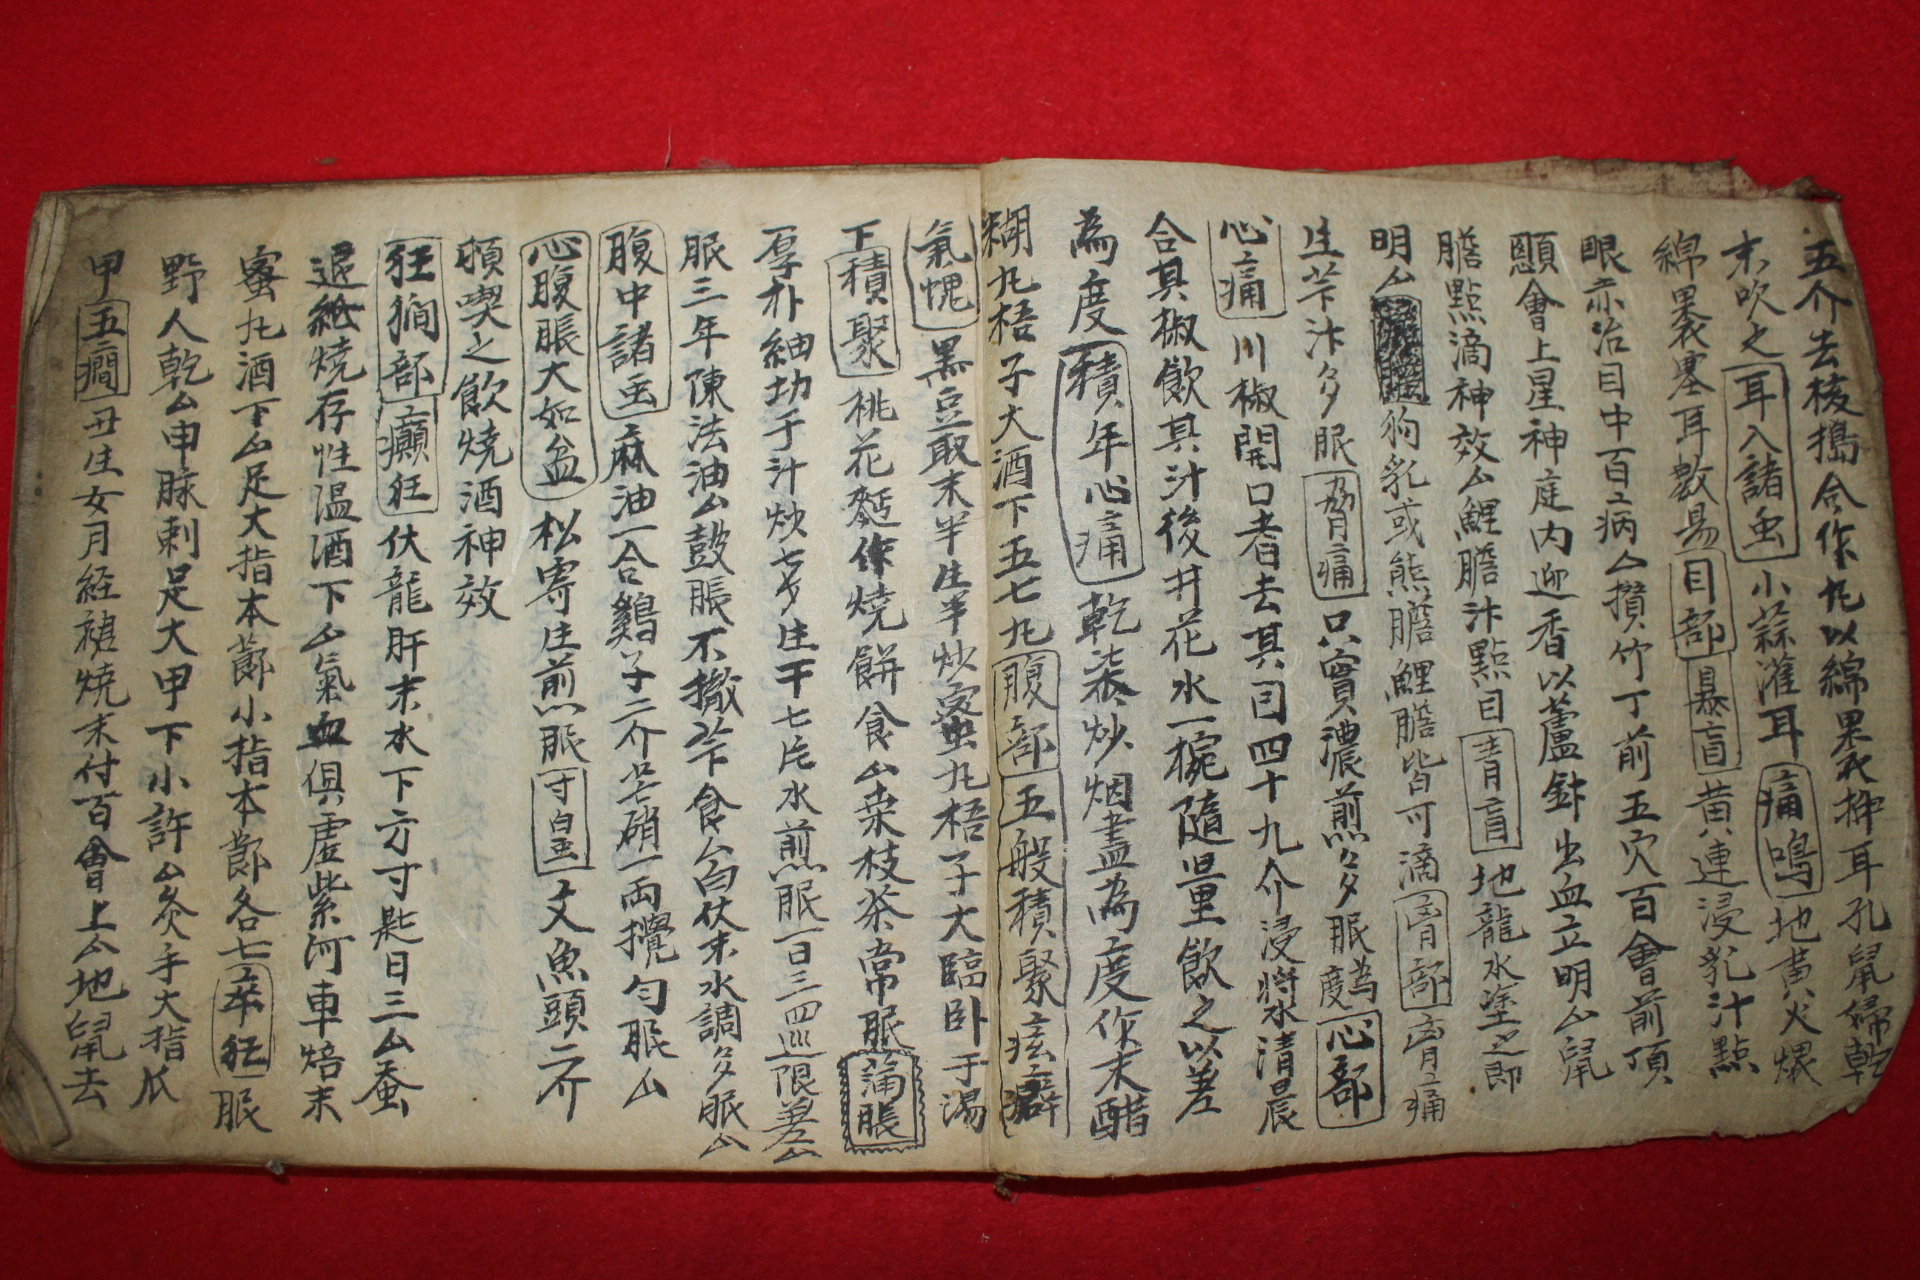 五介去棱搗令作丸以綿裹揷耳孔鼠婦乾
末吹之耳入諸虫小蒜灌耳痛鳴地黃火煨
綿裹塞耳數易目部暴盲黃連浸乳汁點
眼亦治目中百病厶攅竹丁前五穴百會前頂
顖會上星神庭內迎香以蘆針出血立明厶鼠
膽點滴神效厶鯉膽汁點目靑盲地龍水塗之卽
明厶狗乳或熊膽鯉膽皆可滴背部背痛
生芐汁多服脅痛只實濃煎多多服爲度心部
心痛川椒開口者去其目四十九介浸將水淸晨
合其椒飮其汁後井花水一椀隨量飮之以差
爲度積年心痛乾柒炒烟盡爲度作末醋
糊丸梧子大酒下五七丸腹部五般積聚痃癖
氣愧黑豆取末半生半炒蜜丸梧子大臨卧于湯
下積聚桃花麪作燒餠食厶桒枝茶常服蒲脹
厚朴紬切于汁炒七多生干七片水煎服一日三四巡限差厶
服三年陳法油厶鼓脹不撤芐食厶白伏末水調多多服厶
腹中諸虫麻油一合鷄子二介芒硝一兩攪勻服厶
心腹脹大如盆松寄生煎服寸白虫文魚頭二介
頓喫之飮燒酒神效
狂癎部癲狂伏龍肝末水下方寸匙日三厶蚕
退紙燒存性溫酒下厶氣血俱虛紫河車焙末
蜜丸酒下厶足大指本莭小指本莭各七卒狂服
野人乾厶申脉刺足大甲下小許厶灸手大指爪
甲五癎丑生女月経裙燒末付百會上厶地鼠去